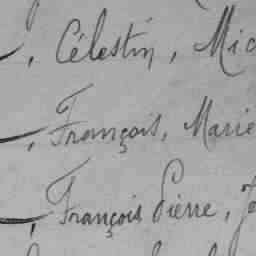 , Célestin, Mic
, François, Marie
, François Pierre, J